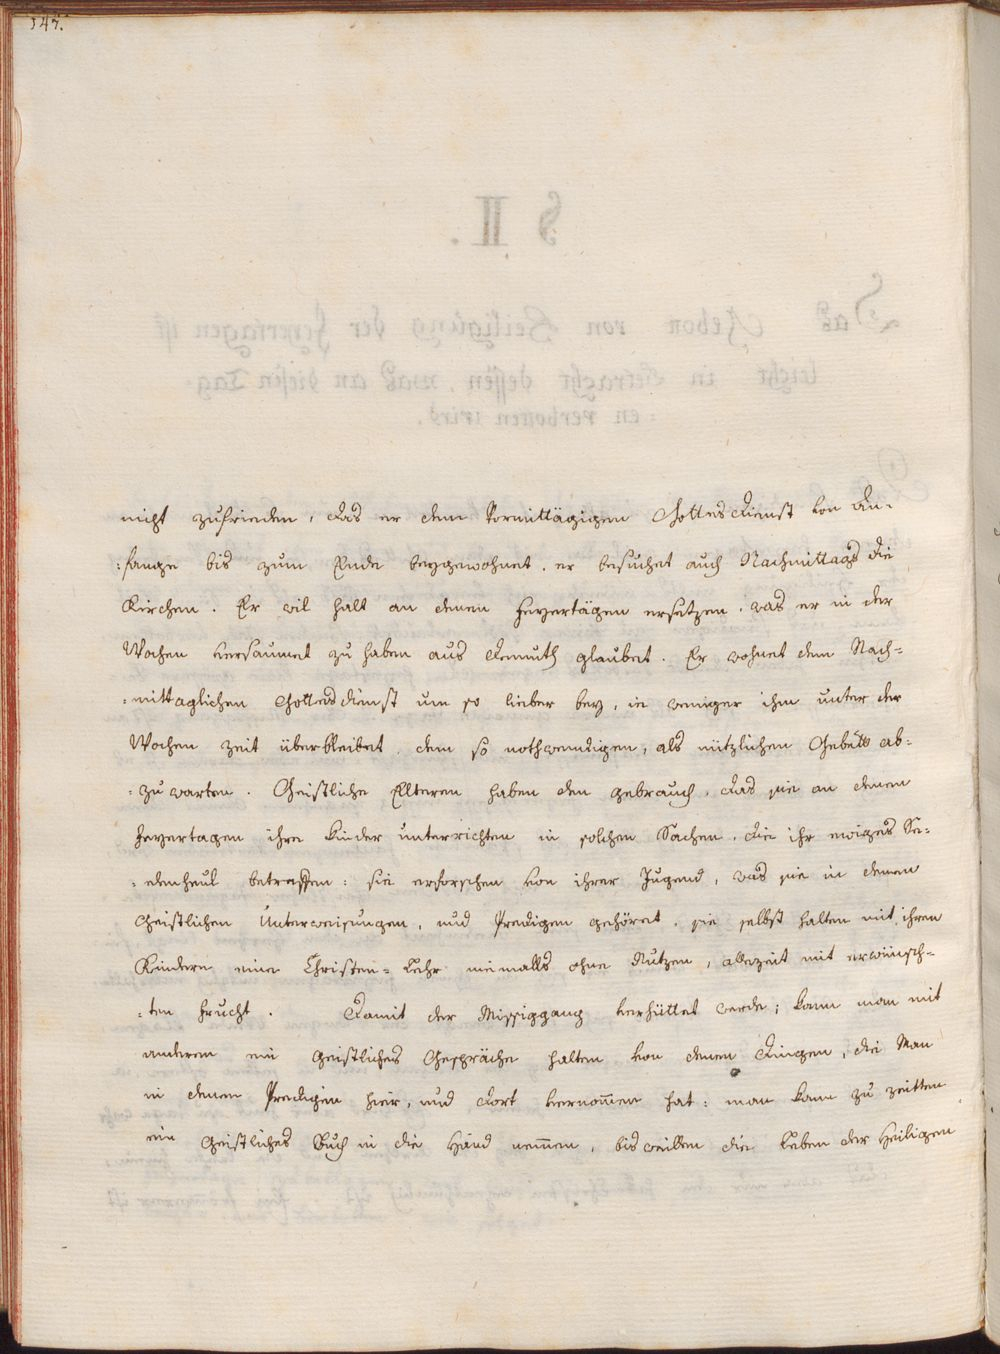 347.
nicht zufrieden, das er dem Vormittägigen Gottesdienst von An-
:fange bis zum Ende beygewohnet, er besuchet auch Nachmittags die
Kirchen. Er wil halt an denen Feyertägen ersetzen, was er in der
Wochen versaumet zu haben aus Demuth glaubet. Er wohnet dem Nach=
=mittaglichen Gottesdienst um so lieber bey, ie weniger ihm unter der
Wochen Zeit überbleibet, dem so nothwendigen, als nützlichen Gebett ab=
=zu warten. Geistliche Elteren haben den gebrauch, das sie an denen
Feyertagen ihre Kinder unterrichten in solchen Sachen, die ihr ewiges See=
=lenheul betreffen: sie erforschen von ihrer Jugend, was sie in denen
Geistlichen Unterweisungen, und Predigen gehöret, sie selbst halten mit ihren
Kindern eine Christen=Lehr niemalls ohne Nutzen, allezeit mit erwünsch=
=ten Frucht. Damit der Müssiggang verhüttet werde; kann man mit
anderen ein Geistliches Gespräche halten von denen Dingen, die Man
in denen Predigen hier, und dort vernommen hat: man kann zu zeitten
ein Geistliches Buch in die Hand nemmen, bisweillen die Leben der Heiligen